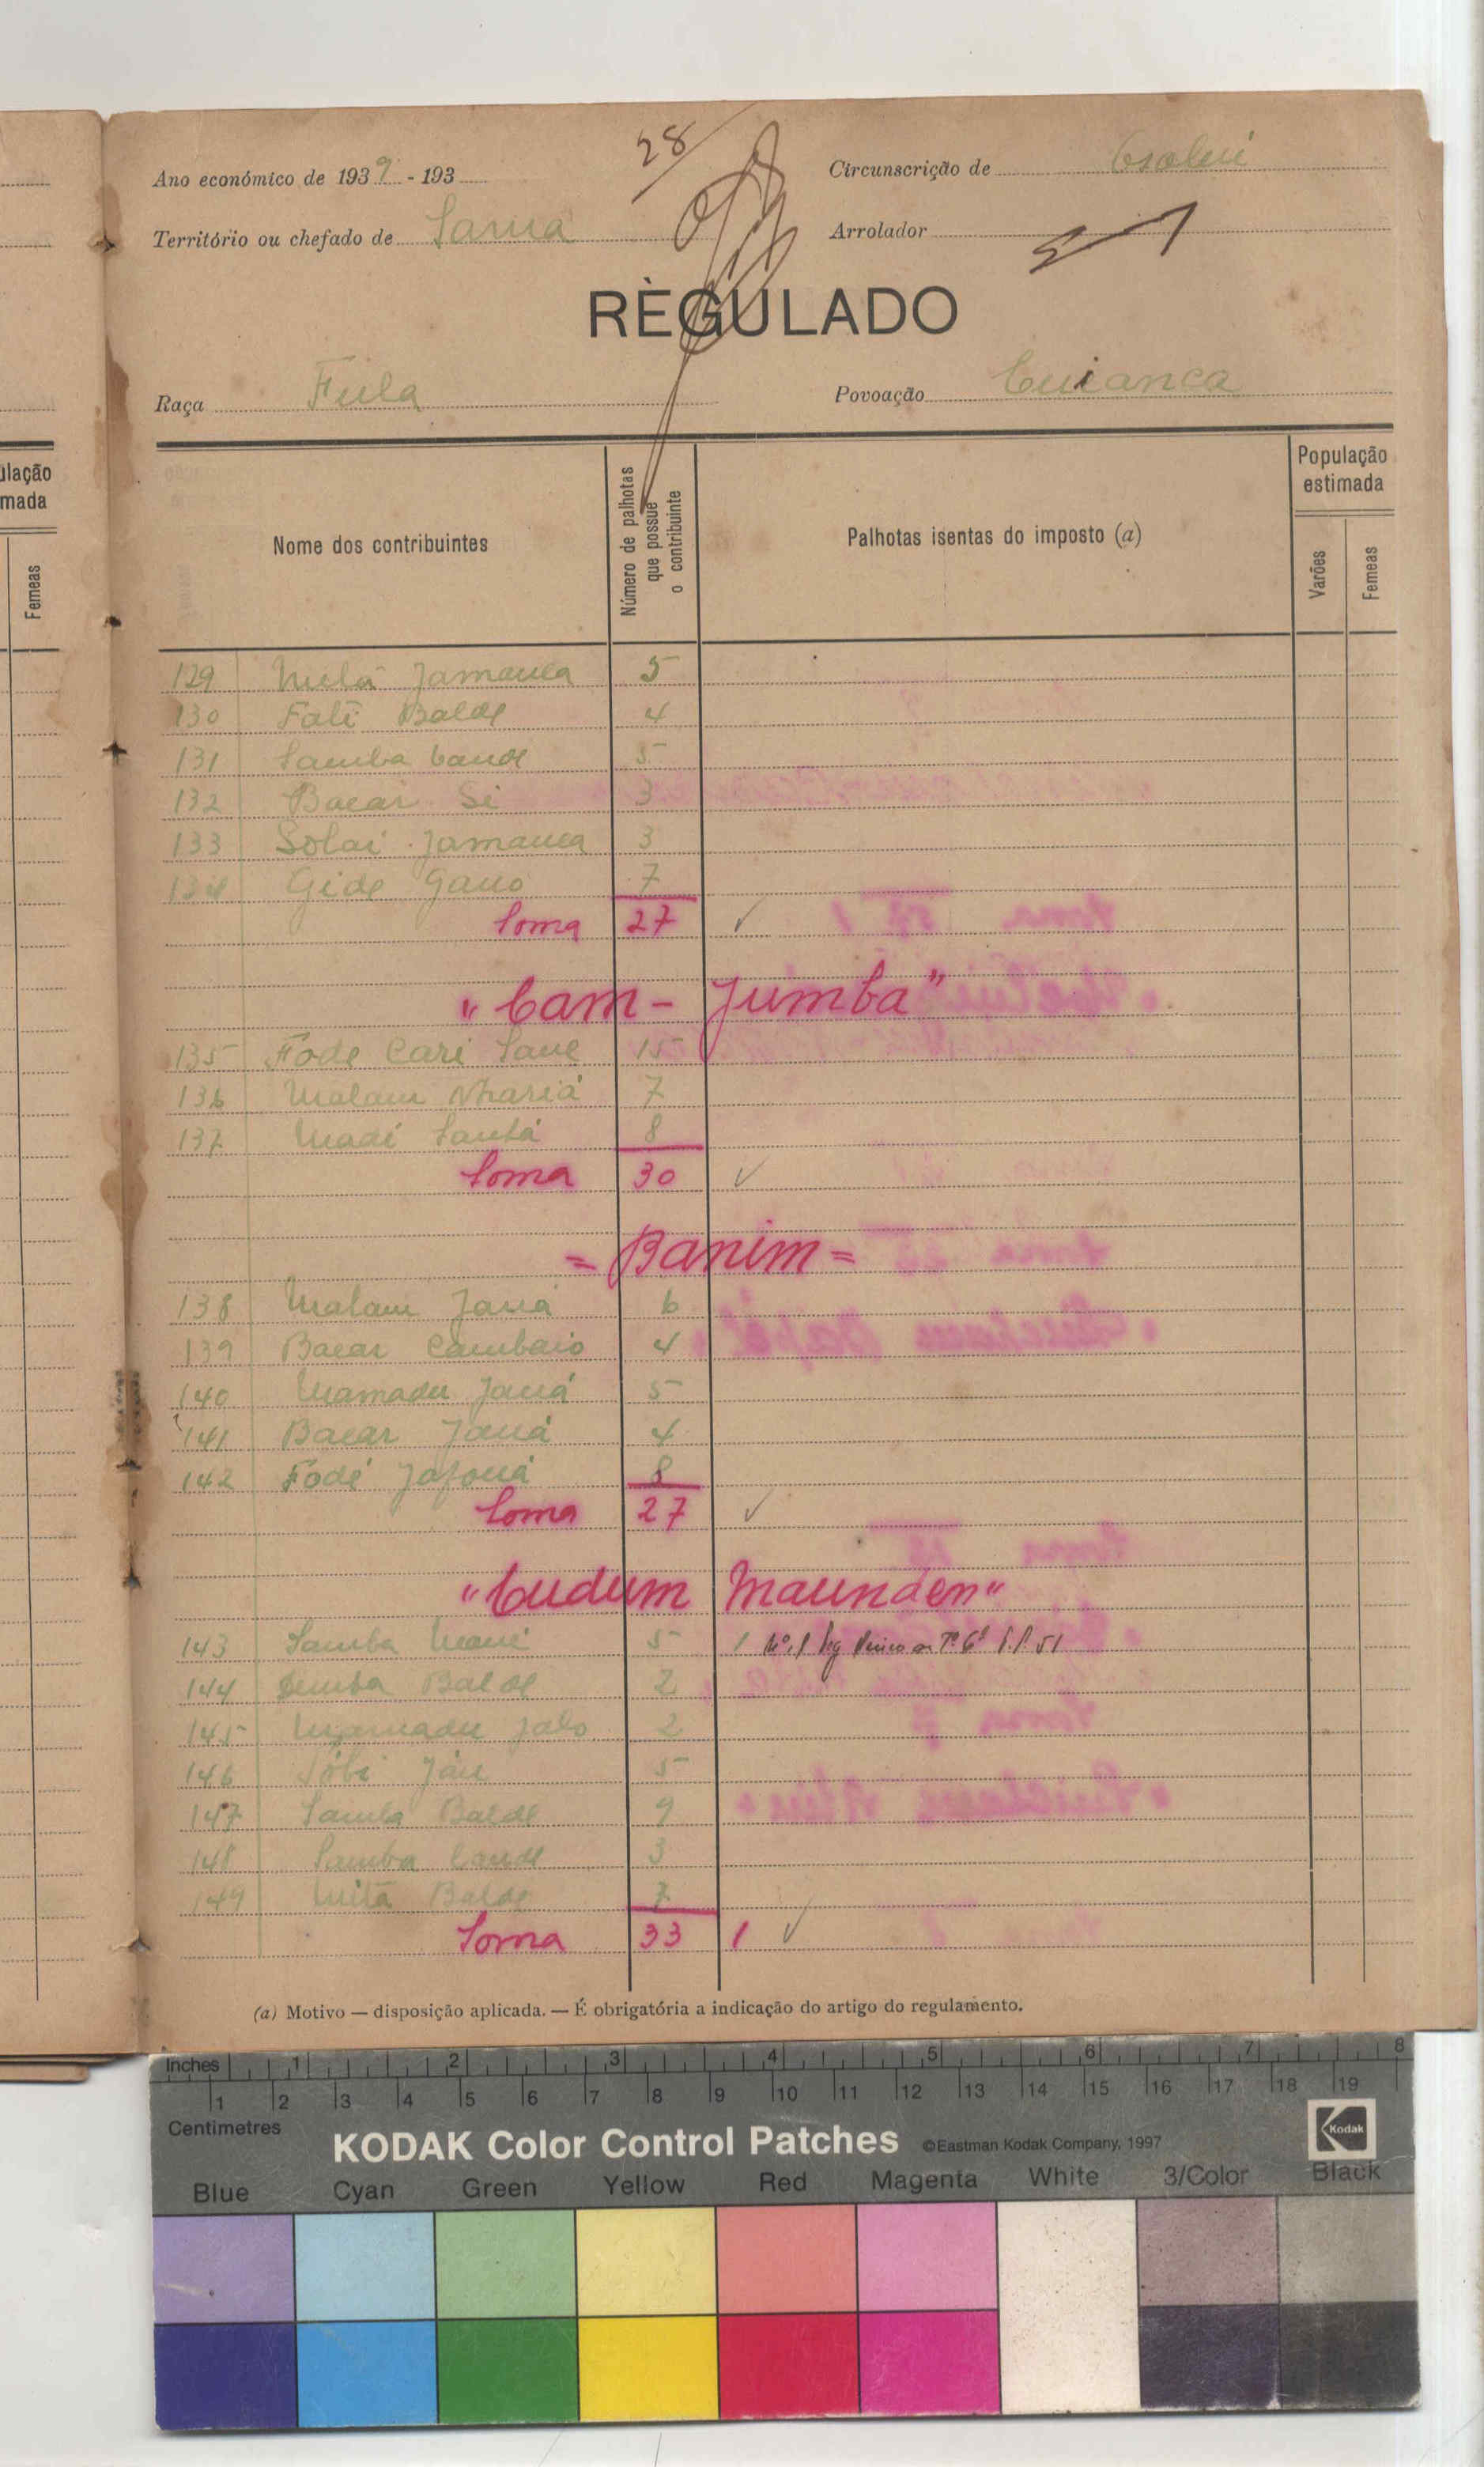 28
Ano económico de 1939 - 193
Circunscrição de
Território ou chefado de Sama
Arrolador
RÈGULADO
Raça Fula
Povoação Cuianca
ulação
mada
Femeas
Nome dos contribuintes
Número de palhotas que possue o contribuinte
Palhotas isentas do imposto (a)
População estimada
Varões
Femeas
129 Jamanca 5
130 Fali Balde 4
131 Samba Cande 5
132 Bacar Si 3
133 Solai Jamanca 3
134 Gide Gano 7
Soma 27 ✓
"Cam - Jumba"
135 Fode Cari Sane 15
136 Malam 7
137 Madi 8
Soma 30 ✓
= Banim =
138 Malam Janá 6
139 Bacar Cambaio 4
140 Mamadu Janá 5
141 Bacar Janá 4
142 Fodé 8
Soma 27 ✓
"Cudum Maunden"
143 Samba Mané 5 1
144 Demba Balde 2
145 Mamadu Jalo 2
146 5
147 Samba Balde 9
148 Samba Cande 3
149 Balde 7
Soma 33 1 ✓
(a) Motivo — disposição aplicada. — É obrigatória a indicação do artigo do regulamento.
Inches 1 2 3 4 5 6 7 8
1 2 3 4 5 6 7 8 9 10 11 12 13 14 15 16 17 18 19
Centimetres
KODAK Color Control Patches ©Eastman Kodak Company, 1997 Kodak
Blue Cyan Green Yellow Red Magenta White 3/Color Black